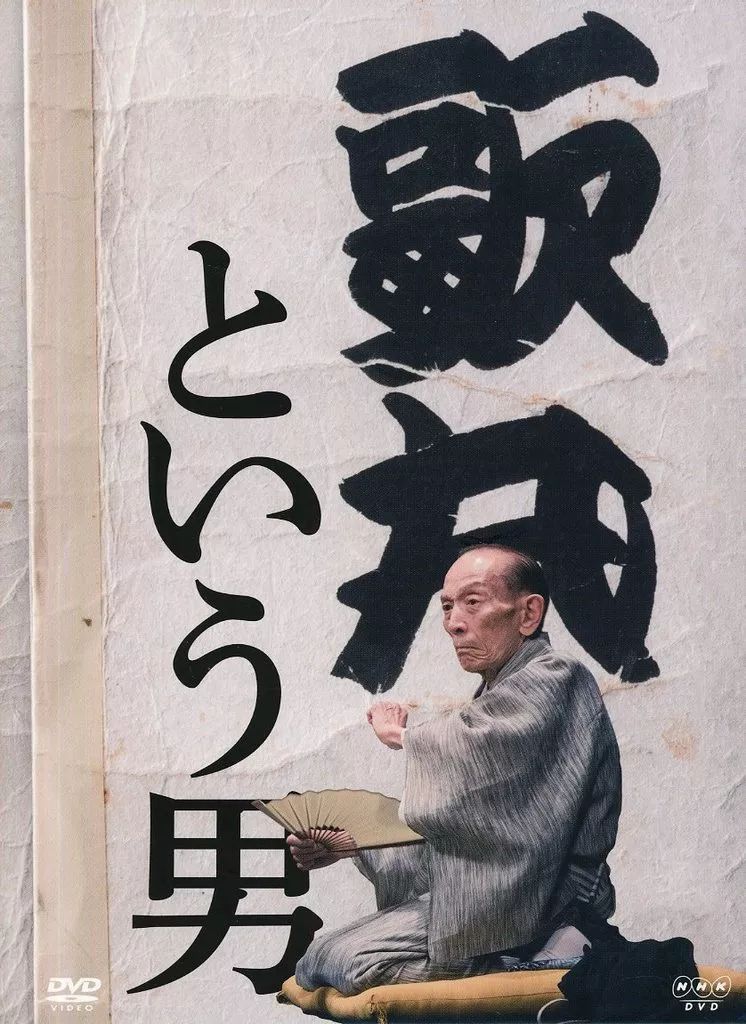 歌丸
という男
DVD
VIDEO
NHK
DVD